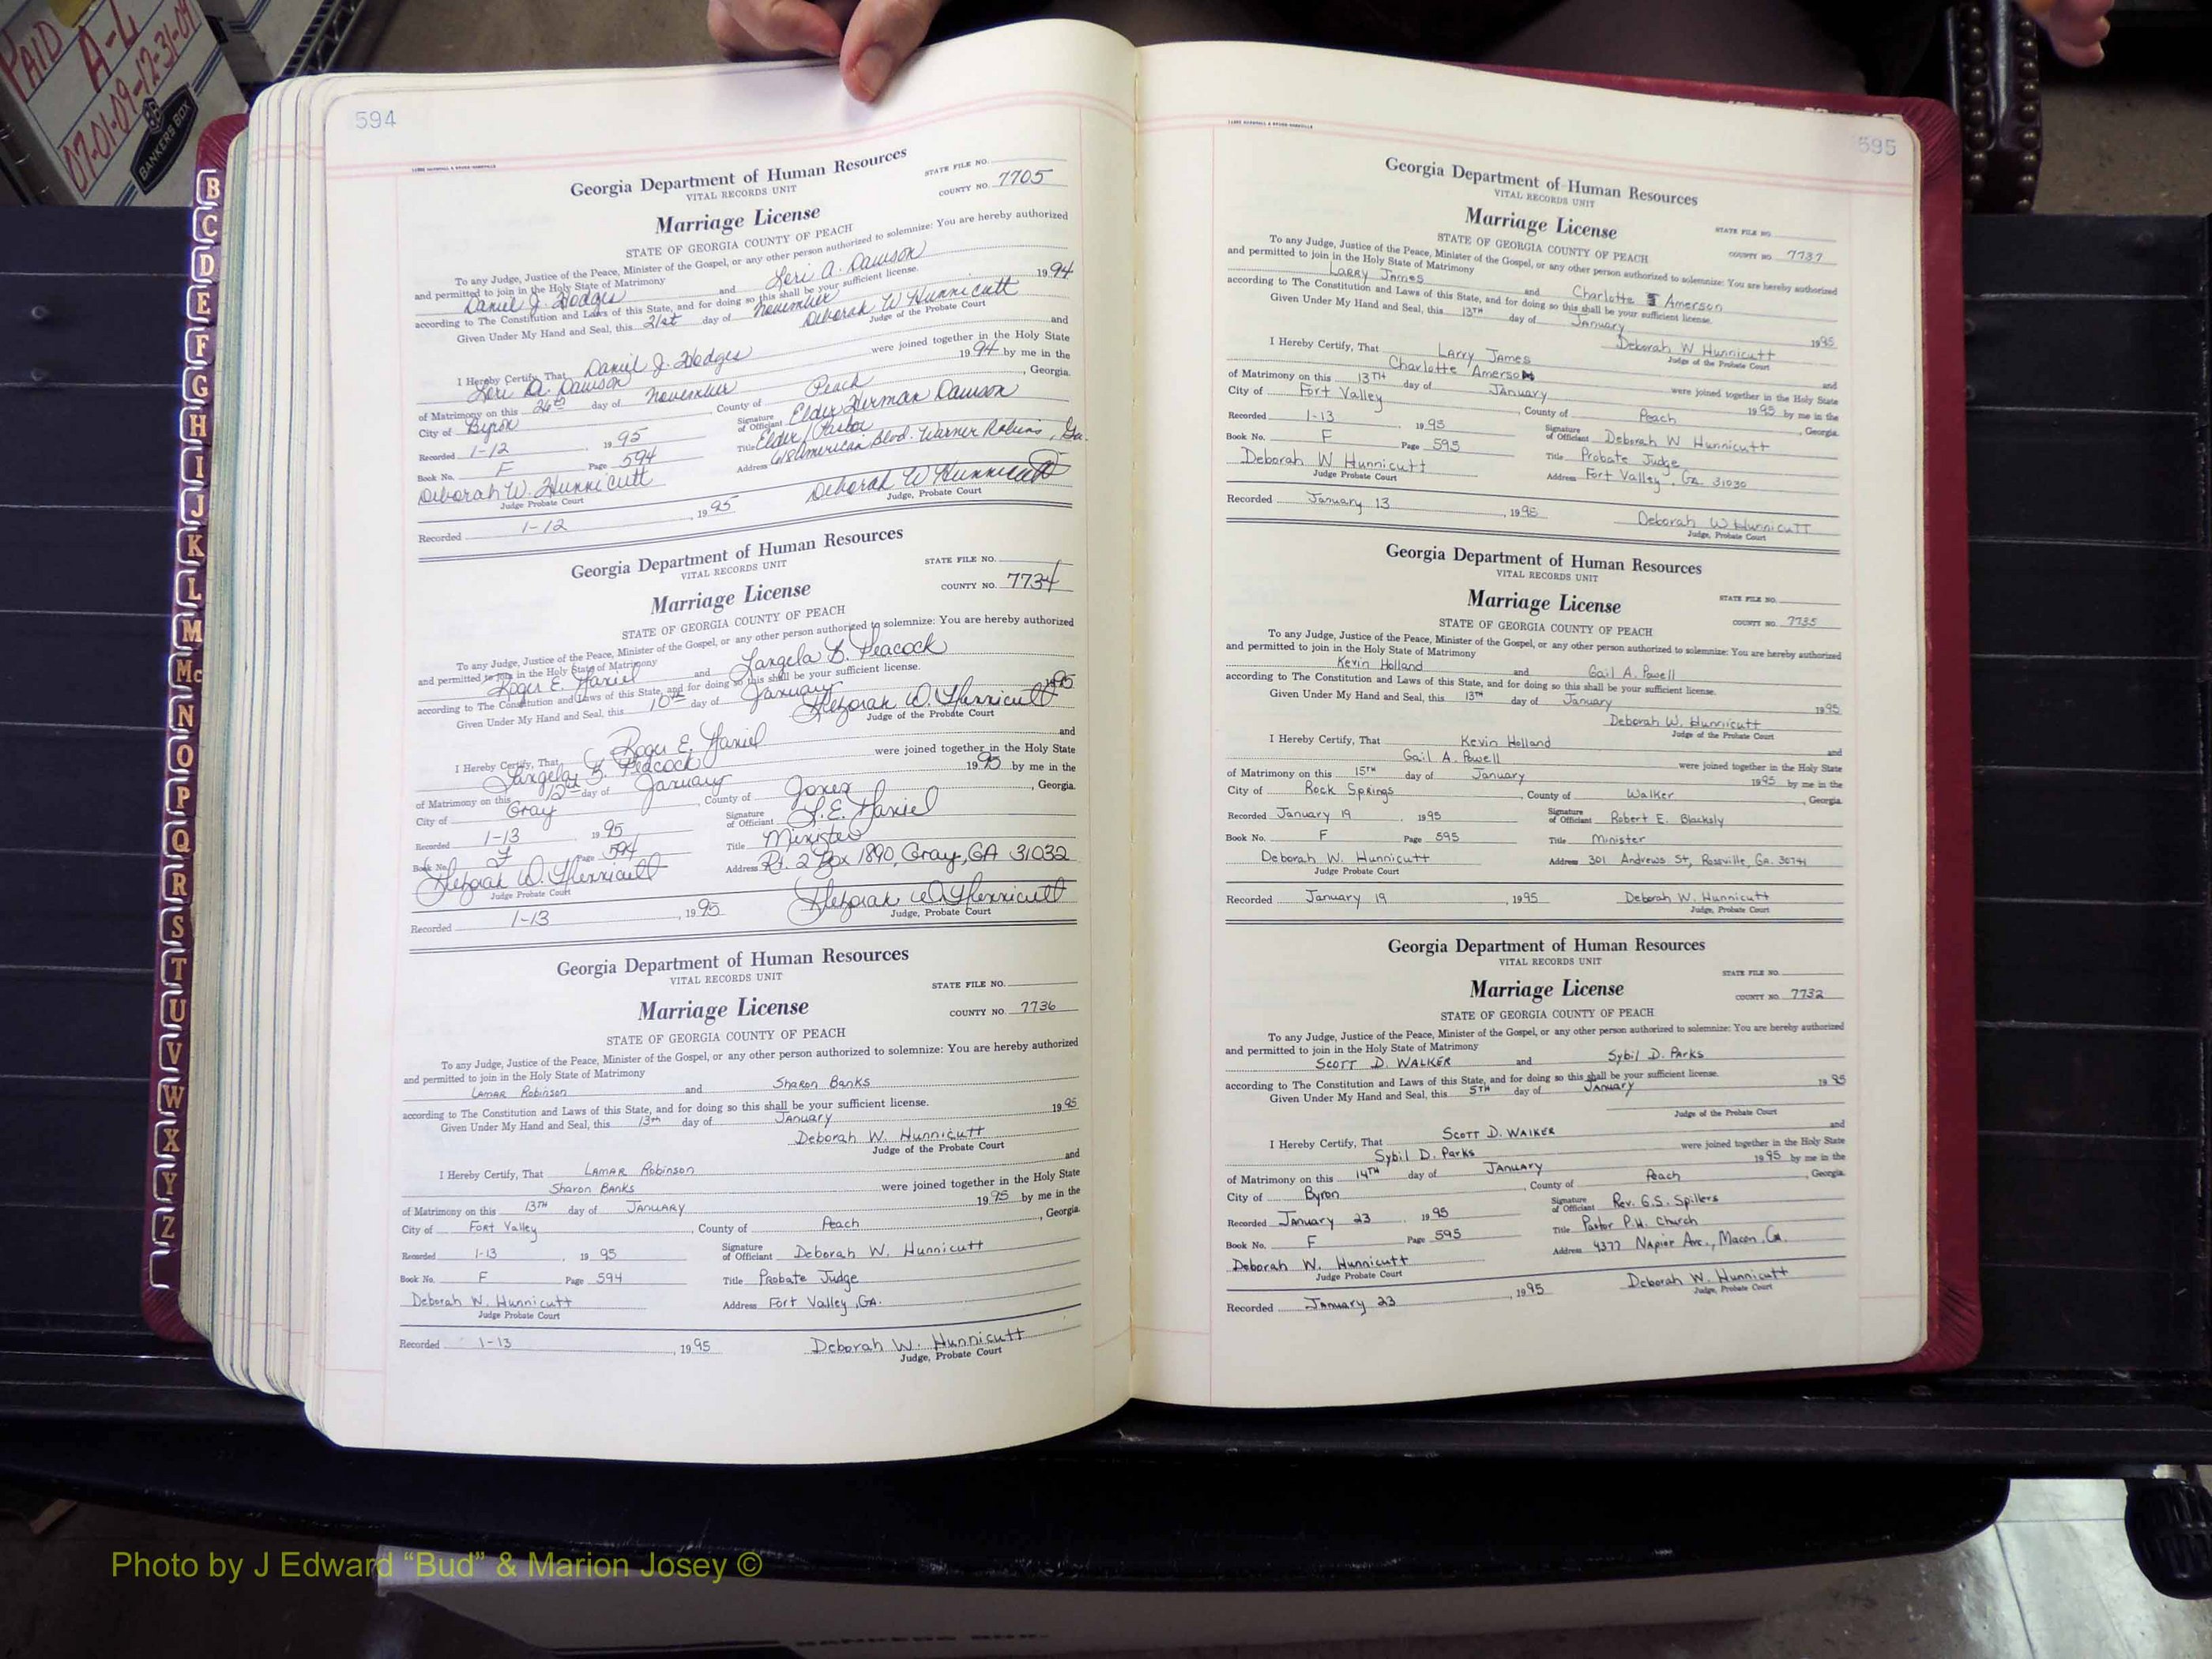 PAID
A-L
07-01-09-12-31-09
BANKERS BOX
B
C
D
E
F
G
H
I
J
K
L
M
Mc
N
O
P
Q
R
S
T
U
V
W
X
Y
Z
594
Georgia Department of Human Resources
VITAL RECORDS UNIT
STATE FILE NO.
COUNTY NO. 7705
Marriage License
STATE OF GEORGIA COUNTY OF PEACH
To any Judge, Justice of the Peace, Minister of the Gospel, or any other person authorized to solemnize: You are hereby authorized
and permitted to join in the Holy State of Matrimony
Daniel J. Hodges and Lori A. Dawson
according to The Constitution and Laws of this State, and for doing so this shall be your sufficient license.
Given Under My Hand and Seal, this 21st day of November 1994
Deborah W Hunnicutt
Judge of the Probate Court
I Hereby Certify, That Daniel J. Hodges and
Lori A. Dawson were joined together in the Holy State
of Matrimony on this 26th day of November 1994 by me in the
City of Byron, County of Peach, Georgia.
Recorded 1-12, 1995 Signature of Officiant Elder Herman Dawson
Book No. F Page 594 Title Elder/Pastor
Deborah W. Hunnicutt Address 618 American Blvd. Warner Robins, Ga.
Judge Probate Court
Recorded 1-12, 1995 Deborah W Hunnicutt
Judge, Probate Court
Georgia Department of Human Resources
VITAL RECORDS UNIT
STATE FILE NO.
COUNTY NO. 7734
Marriage License
STATE OF GEORGIA COUNTY OF PEACH
To any Judge, Justice of the Peace, Minister of the Gospel, or any other person authorized to solemnize: You are hereby authorized
and permitted to join in the Holy State of Matrimony
Roger E. Haniel and Tangela B. Peacock
according to The Constitution and Laws of this State, and for doing so this shall be your sufficient license.
Given Under My Hand and Seal, this 10th day of January 1995
Deborah W. Hunnicutt
Judge of the Probate Court
I Hereby Certify, That Roger E. Haniel and
Tangela B. Peacock were joined together in the Holy State
of Matrimony on this 12th day of January 1995 by me in the
City of Gray, County of Jones, Georgia.
Recorded 1-13, 1995 Signature of Officiant E. Haniel
Book No. F Page 594 Title Minister
Deborah W. Hunnicutt Address Rt. 2 Box 1890, Gray, GA 31032
Judge Probate Court
Recorded 1-13, 1995 Deborah W. Hunnicutt
Judge, Probate Court
Georgia Department of Human Resources
VITAL RECORDS UNIT
STATE FILE NO.
COUNTY NO. 7736
Marriage License
STATE OF GEORGIA COUNTY OF PEACH
To any Judge, Justice of the Peace, Minister of the Gospel, or any other person authorized to solemnize: You are hereby authorized
and permitted to join in the Holy State of Matrimony
Lamar Robinson and Sharon Banks
according to The Constitution and Laws of this State, and for doing so this shall be your sufficient license.
Given Under My Hand and Seal, this 13th day of January 1995
Deborah W. Hunnicutt
Judge of the Probate Court
I Hereby Certify, That Lamar Robinson and
Sharon Banks were joined together in the Holy State
of Matrimony on this 13TH day of JANUARY 1995 by me in the
City of Fort Valley, County of Peach, Georgia.
Recorded 1-13, 1995 Signature of Officiant Deborah W. Hunnicutt
Book No. F Page 594 Title Probate Judge
Deborah W. Hunnicutt Address Fort Valley, GA.
Judge Probate Court
Recorded 1-13, 1995 Deborah W. Hunnicutt
Judge, Probate Court
595
Georgia Department of Human Resources
VITAL RECORDS UNIT
Marriage License
STATE FILE NO.
STATE OF GEORGIA COUNTY OF PEACH
COUNTY NO. 7737
To any Judge, Justice of the Peace, Minister of the Gospel, or any other person authorized to solemnize: You are hereby authorized
and permitted to join in the Holy State of Matrimony
Larry James and Charlotte Amerson
according to The Constitution and Laws of this State, and for doing so this shall be your sufficient license.
Given Under My Hand and Seal, this 13TH day of January 1995
Deborah W Hunnicutt
Judge of the Probate Court
I Hereby Certify, That Larry James and
Charlotte Amerson were joined together in the Holy State
of Matrimony on this 13TH day of January 1995 by me in the
City of Fort Valley, County of Peach, Georgia.
Recorded 1-13, 1995 Signature of Officiant Deborah W Hunnicutt
Book No. F Page 595 Title Probate Judge
Deborah W Hunnicutt Address Fort Valley, GA 31030
Judge Probate Court
Recorded January 13, 1995 Deborah W Hunnicutt
Judge, Probate Court
Georgia Department of Human Resources
VITAL RECORDS UNIT
STATE FILE NO.
Marriage License
COUNTY NO. 7735
STATE OF GEORGIA COUNTY OF PEACH
To any Judge, Justice of the Peace, Minister of the Gospel, or any other person authorized to solemnize: You are hereby authorized
and permitted to join in the Holy State of Matrimony
Kevin Holland and Gail A. Powell
according to The Constitution and Laws of this State, and for doing so this shall be your sufficient license.
Given Under My Hand and Seal, this 13TH day of January 1995
Deborah W. Hunnicutt
Judge of the Probate Court
I Hereby Certify, That Kevin Holland and
Gail A. Powell were joined together in the Holy State
of Matrimony on this 15TH day of January 1995 by me in the
City of Rock Springs, County of Walker, Georgia.
Recorded January 19, 1995 Signature of Officiant Robert E. Blacksly
Book No. F Page 595 Title Minister
Deborah W. Hunnicutt Address 301 Andrews St, Rossville, Ga. 30741
Judge Probate Court
Recorded January 19, 1995 Deborah W. Hunnicutt
Judge, Probate Court
Georgia Department of Human Resources
VITAL RECORDS UNIT
STATE FILE NO.
Marriage License
COUNTY NO. 7732
STATE OF GEORGIA COUNTY OF PEACH
To any Judge, Justice of the Peace, Minister of the Gospel, or any other person authorized to solemnize: You are hereby authorized
and permitted to join in the Holy State of Matrimony
SCOTT D. WALKER and Sybil D. Parks
according to The Constitution and Laws of this State, and for doing so this shall be your sufficient license.
Given Under My Hand and Seal, this 5TH day of January 1995
Judge of the Probate Court
I Hereby Certify, That SCOTT D. WALKER and
Sybil D. Parks were joined together in the Holy State
of Matrimony on this 14TH day of January 1995 by me in the
City of Byron, County of Peach, Georgia.
Recorded January 23, 1995 Signature of Officiant Rev. G.S. Spillers
Book No. F Page 595 Title Pastor P.H. Church
Deborah W. Hunnicutt Address 4377 Napier Ave., Macon, Ga.
Judge Probate Court
Recorded January 23, 1995 Deborah W. Hunnicutt
Judge, Probate Court
Photo by J Edward “Bud” & Marion Josey ©